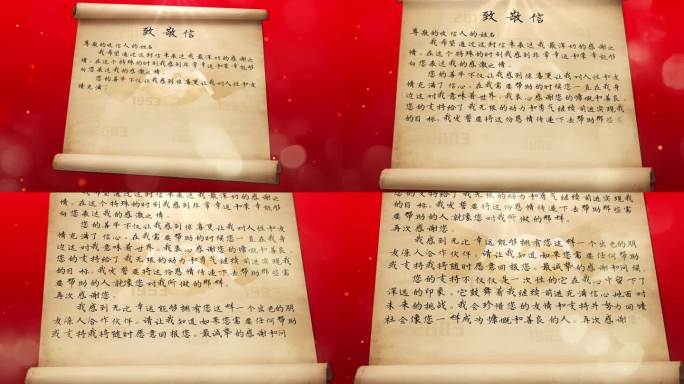 致敬信
尊敬的收信人的姓名
我希望通过这封信来表达我最深切的感谢之
情，在这个特殊的时刻我感到非常幸运和荣幸能够
向您表达我的感激之情。
您的善举不仅让我感到惊喜更让我对人性和友
情充满了
致敬信
尊敬的收信人的姓名
我希望通过这封信来表达我最深切的感谢之
情，在这个特殊的时刻我感到非常幸运和荣幸能够
向您表达我的感激之情。
您的善举不仅让我感到惊喜更让我对人性和友
情充满了信心，在我需要帮助的时候您一直在我身
边这对我意味着世界。我衷心感谢您的慷慨和善良。
您的支持给了我无限的动力和勇气继续前进实现我
的目标。我发誓要将这份恩情传递下去帮助那些
情，在这个特殊的时刻我感到非常幸运和荣幸能够
向您表达我的感激之情。
您的善举不仅让我感到惊喜更让我对人性和友
情充满了信心，在我需要帮助的时候您一直在我身
边这对我意味着世界。我衷心感谢您的慷慨和善良。
您的支持给了我无限的动力和勇气继续前进实现我
的目标。我发誓要将这份恩情传递下去帮助那些需
要帮助的人就像您对我所做的那样。
再次感谢您。
我感到无比幸运能够拥有您这样一个出色的朋
友家人合作伙伴。请让我知道如果您需要任何帮助
或支持我将随时愿意回报您。最诚挚的感谢和问
您的支持给了我无限的动力和勇气继续前进实现我
的目标。我发誓要将这份恩情传递下去帮助那些需
要帮助的人就像您对我所做的那样。
再次感谢您。
我感到无比幸运能够拥有您这样一个出色的朋
友家人合作伙伴。请让我知道如果您需要任何帮助
或支持我将随时愿意回报您。最诚挚的感谢和问候。
您的支持不仅仅是一次性的它在我心中留下了
深远的印象。它鼓舞着我继续前进充满信心地面对
未来的挑战。我会珍惜您的友情和支持并努力回馈
社会像您一样成为慷慨和善良的人。再次感谢